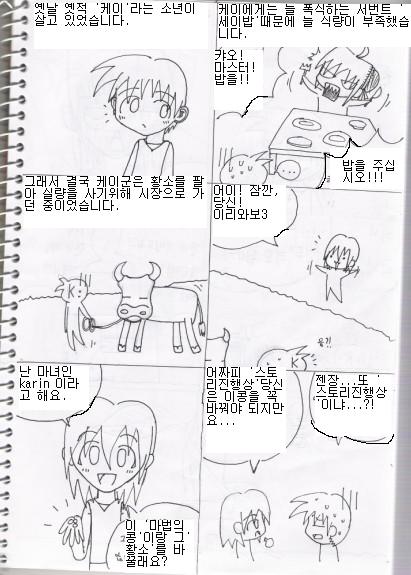 옛날 옛적 '케이'라는 소년이
살고 있었습니다.
케이에게는 늘 폭식하는 서번트 '
세이밥'때문에 늘 식량이 부족했습
니다.
캬오!
마스터!
밥을!!
밥을 주십
시오!!!
그래서 결국 케이군은 황소를 팔
아 실량을 사기위해 시장으로 가
던 중이었습니다.
K
어이! 잠깐,
당신!
이리와보3
K
난 마녀인
karin 이라
고 해요.
이 '마법의
콩'이랑 그'
황소'를 바
꿀래요?
어짜피 '스토
리진행상'당신
은 이콩을 꼭
바꿔야 되지만
요...
젠장...또 '
스토리진행상
'이냐...?!